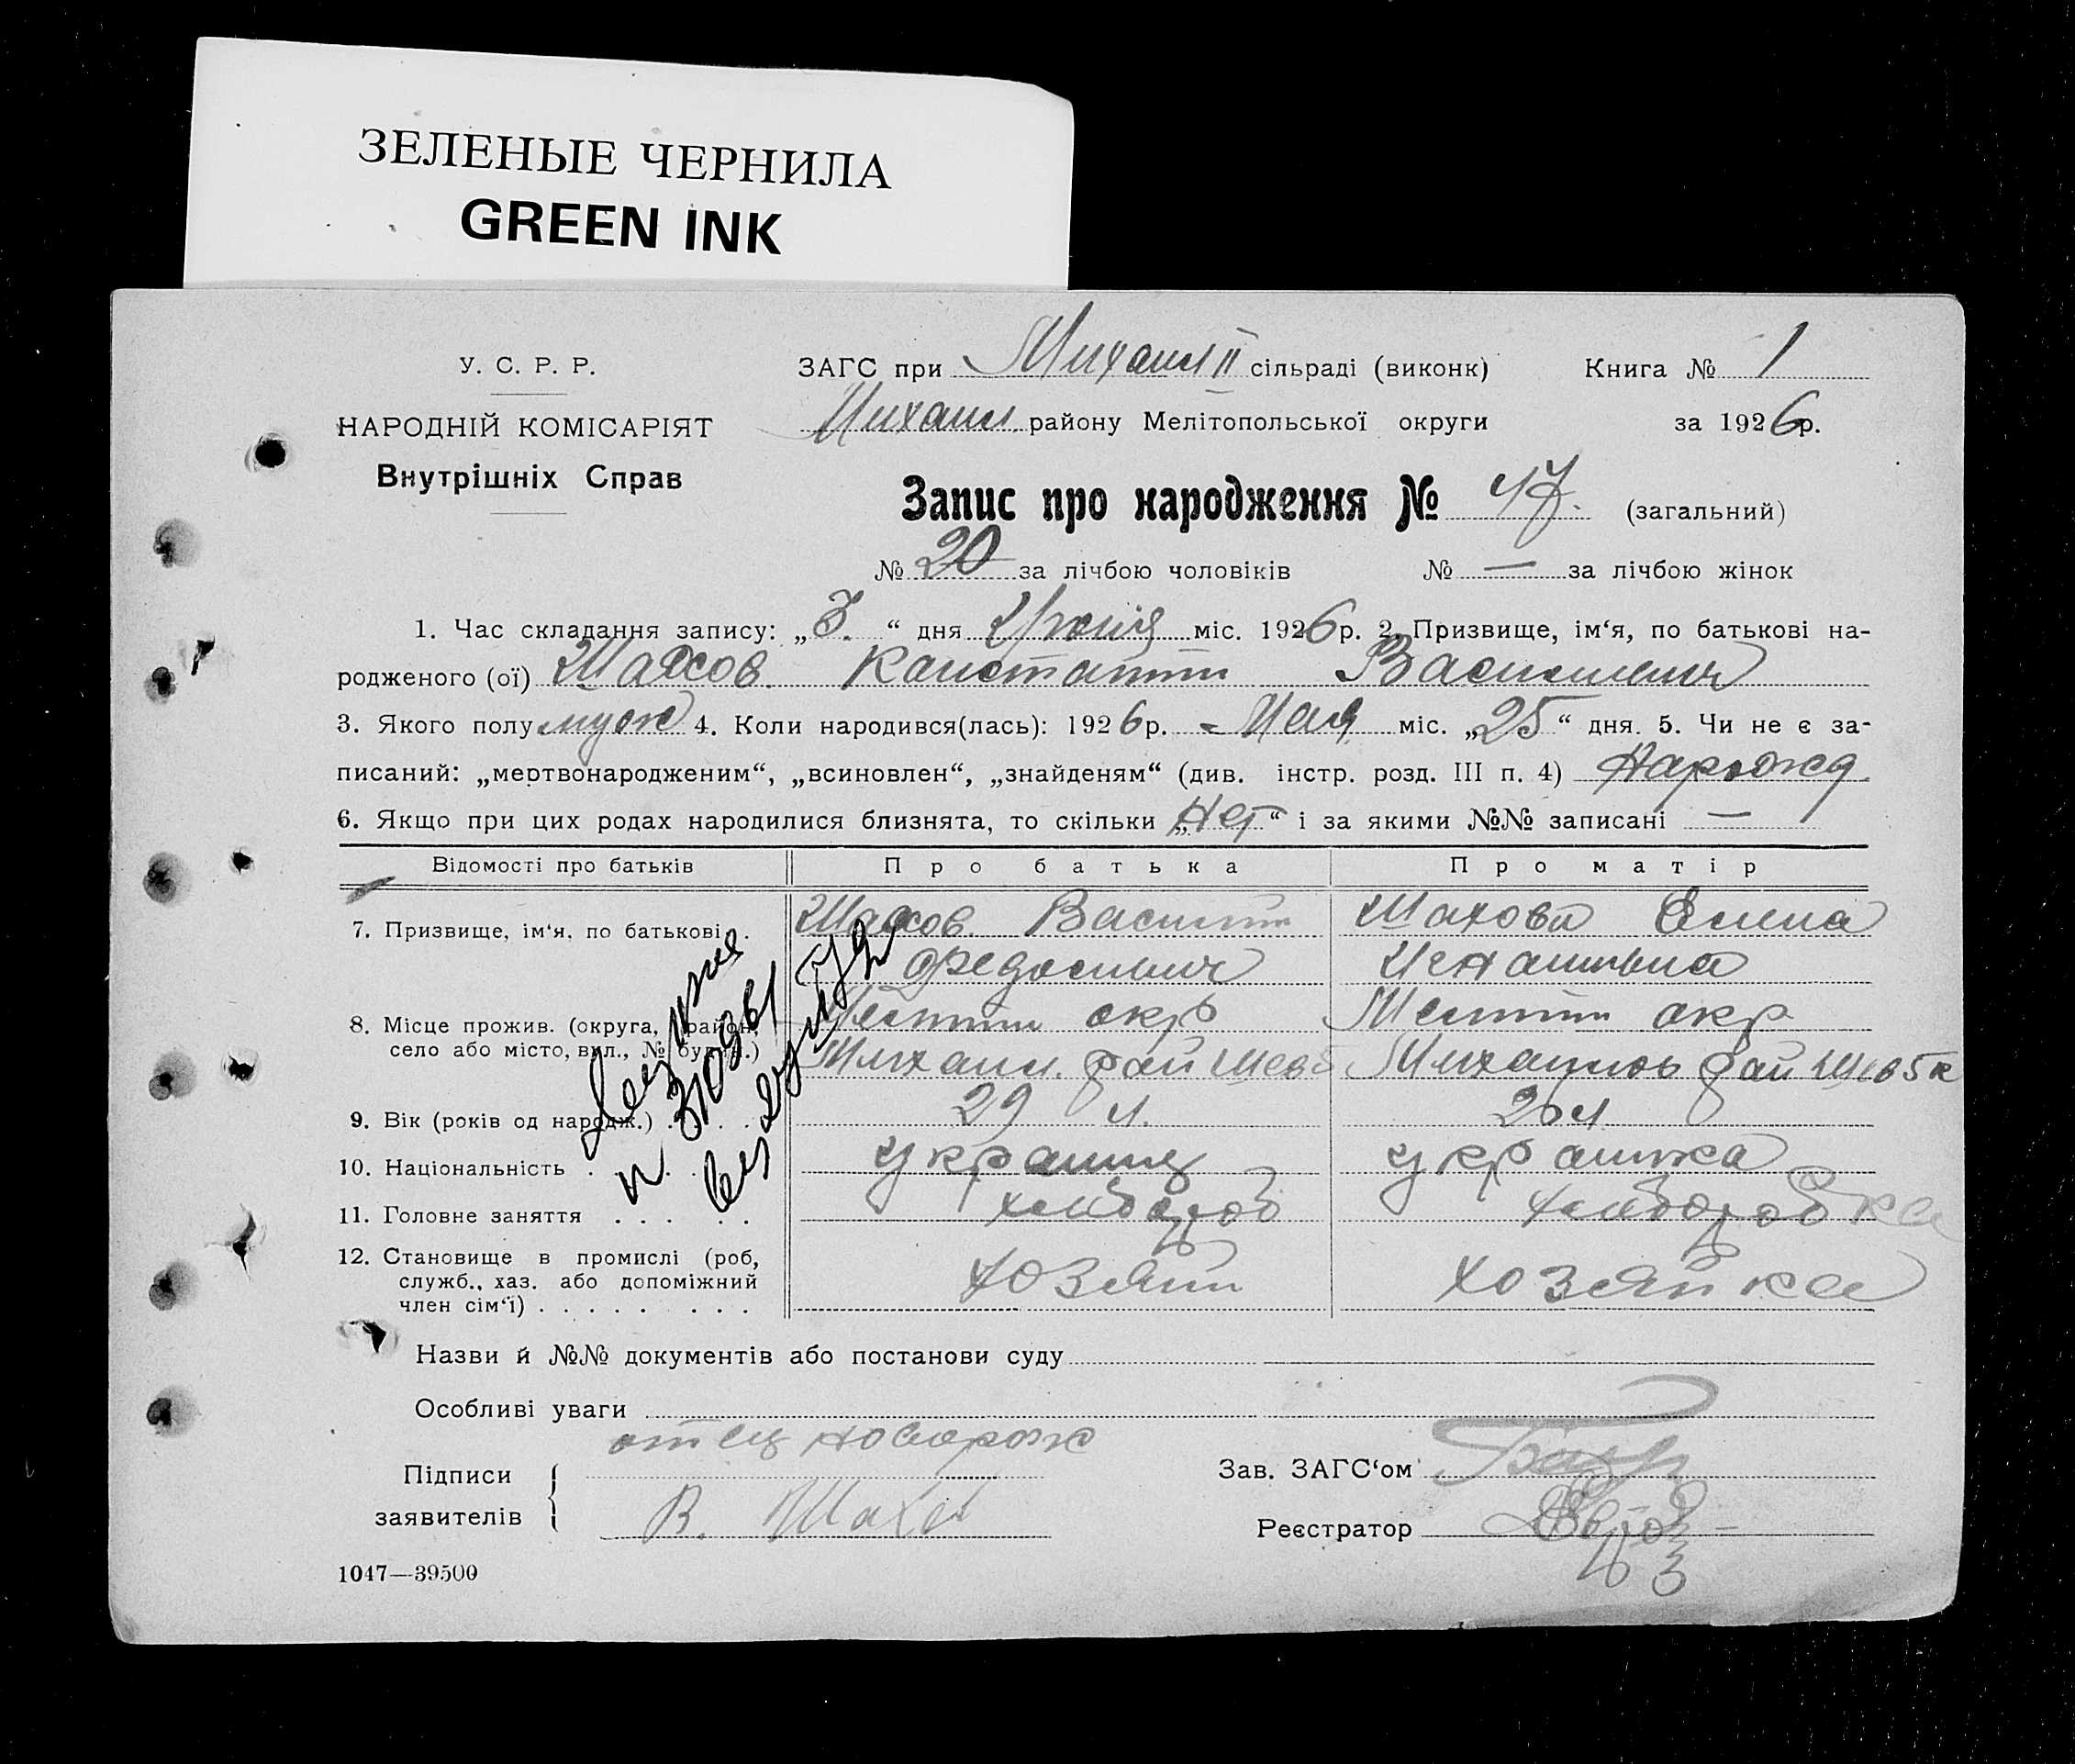 ЗЕЛЕНЫЕ ЧЕРНИЛА
GREEN INK
У. С. Р. Р.
НАРОДНІЙ КОМІСАРІЯТ
Внутрішніх Справ
ЗАГС при Михайл II сільраді (виконк) Книга № 1
Михайл. району Мелітопольської округи за 1926р.
Запис про народження № 47. (загальний)
№ 20 за лічбою чоловіків № — за лічбою жінок
1. Час складання запису: „3.“ дня міс. 1926р. 2. Призвище, ім‘я, по батькові на-
родженого (ої) Шахов. Канстантин Васильевич
3. Якого полу муж 4. Коли народився(лась): 1926р. Мая міс. „25“ дня. 5. Чи не є за-
писаний: „мертвонародженим“, „всиновлен“, „знайденям“ (див. інстр. розд. III п. 4) Нарожд
6. Якщо при цих родах народилися близнята, то скільки „Нет“ і за якими №№ записані —
Відомості про батьків Про батька Про матір
7. Призвище, ім‘я, по батькові . Шахов. Василий Шахова Елена
Федосеевич
8. Місце прожив. (округа, район, Мелитоп окр Мелитоп окр
село або місто, вул., № будин.) Михайл. рай Михайлов рай
9. Вік (років од народж.) . . . . 29 л. 26 л
10. Національність . . . . украинец украинка
11. Головне заняття . . . . . хлибороб хлиборобка
12. Становище в промислі (роб,
служб., хаз. або допоміжний хозяин хозяйка
член сім‘ї) . . . . . . . .
Назви й №№ документів або постанови суду
Особливі уваги
отец новорож
Підписи
заявителів
В. Шахов
Зав. ЗАГС‘ом
Реєстратор
1047—39500